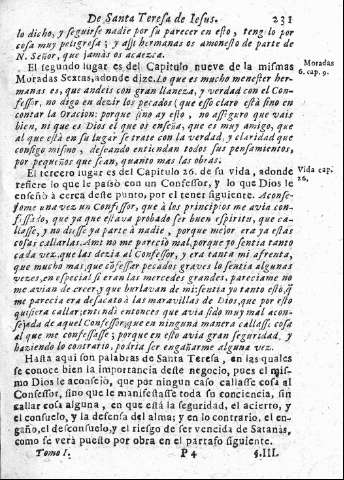 De Santa Teresa de Iesus. 231
lo dicho, y seguirse nadie por su parecer en esto, tenglo por
cosa muy peligrosa; y assi hermanas os amonesto de parte de
N. Señor, que jamàs os acaezca.
El segundo lugar es del Capitulo nueve de la mismas
Moradas
6. cap. 9.
Moradas Sextas, adonde dize. Lo que es mucho menester her-
manas es, que andeis con gran llaneza, y verdad con el Con-
fessor, no digo en dezir los pecados (que esso claro està sino en
contar la Oracion: porque sino ay esto, no asseguro que vais
bien, ni que es Dios el que os enseña, que es muy amigo, que
al que està en su lugar se trate con la verdad, y claridad que
consigo mismo, deseando entiendan todos sus pensamientos,
por pequeños que sean, quanto mas las obras.
El tercero lugar es del Capitulo 26. de su vida, adonde
Vida cap.
26,
refiere lo que le passò con un Confessor, y lo que Dios le
enseñò à cerca deste punto, por el tener siguiente. Aconse-
jome una vez un Confessor, que à los principios me avia con-
fessado, que ya que estava probado ser buen espiritu, que ca-
llasse, y no diesse ya parte à nadie, porque mejor era ya estas
cosas callarlas. Ami no me pareciò mal, porque yo sentia tanto
cada vez, que las dezia al Confessor, y era tanta mi afrenta,
que mucho mas, que cõfessar pecados graves lo sentia algunas
vezes, en especial si eran las mercedes grandes, pareciame no
me avian de creer, y que burlavan de mi: sentia yo tanto estõ, q̃
me parecia era desacato à las maravillas de Dios, que por esto
quisiera callar; entendi entonces que avia sido muy mal acon-
sejada de aquel Confessor, que en ninguna manera callasse cosa
al que me confessasse; porque en esto avia gran seguridad, y
haziendo lo contrario, podria ser engañarme alguna vez.
Hasta aqui son palabras de Santa Teresa, en las quales
se conoce bien la importancia deste negocio, pues el mis-
mo Dios le aconsejò, que por ningun caso callasse cosa al
Confessor, sino que le manifestasse toda su conciencia, sin
callar cosa alguna, en que està la seguridad, el acierto, y
el consuelo, y la defensa del alma; y en lo contrario, el en-
gaño, el desconsuelo, y el riesgo de ser vencida de Satanàs,
como se verà puesto por obra en el parrafo siguiente.
Tomo I. P 4 §. III.